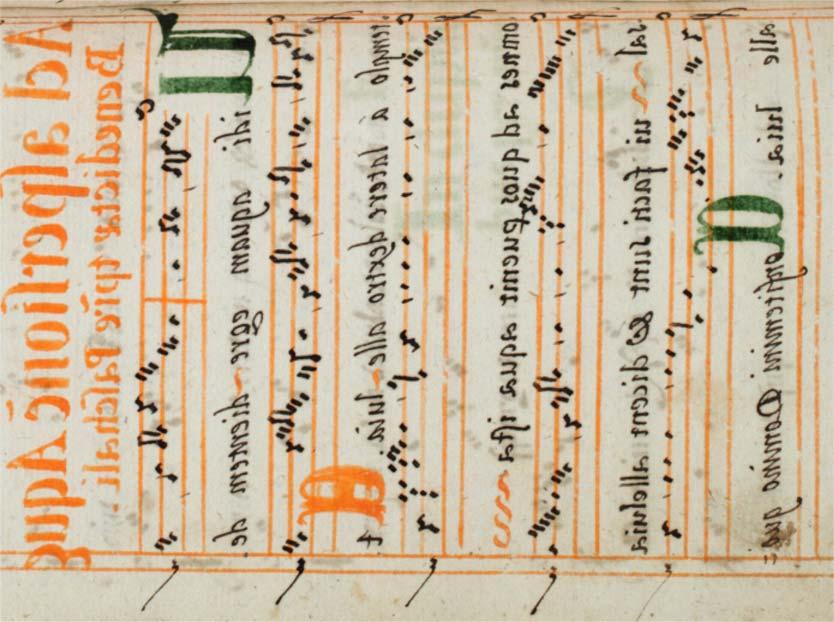 Ad aspersionē Aquę
Benedictæ tp̄re Paschali.
Vidi aquam egre~dientem de
templo a latere dextro alle~luia. Et
omnes ad quos puenit aqua ista
sal~ui facti sunt & dicent alleluia
alle luia. Confitemini Domino quo=